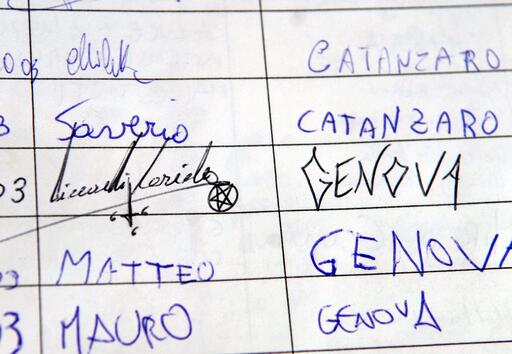 003 CATANZARO
3 Saverio CATANZARO
03 GENOVA
MATTEO GENOVA
03 MAURO GENOVA